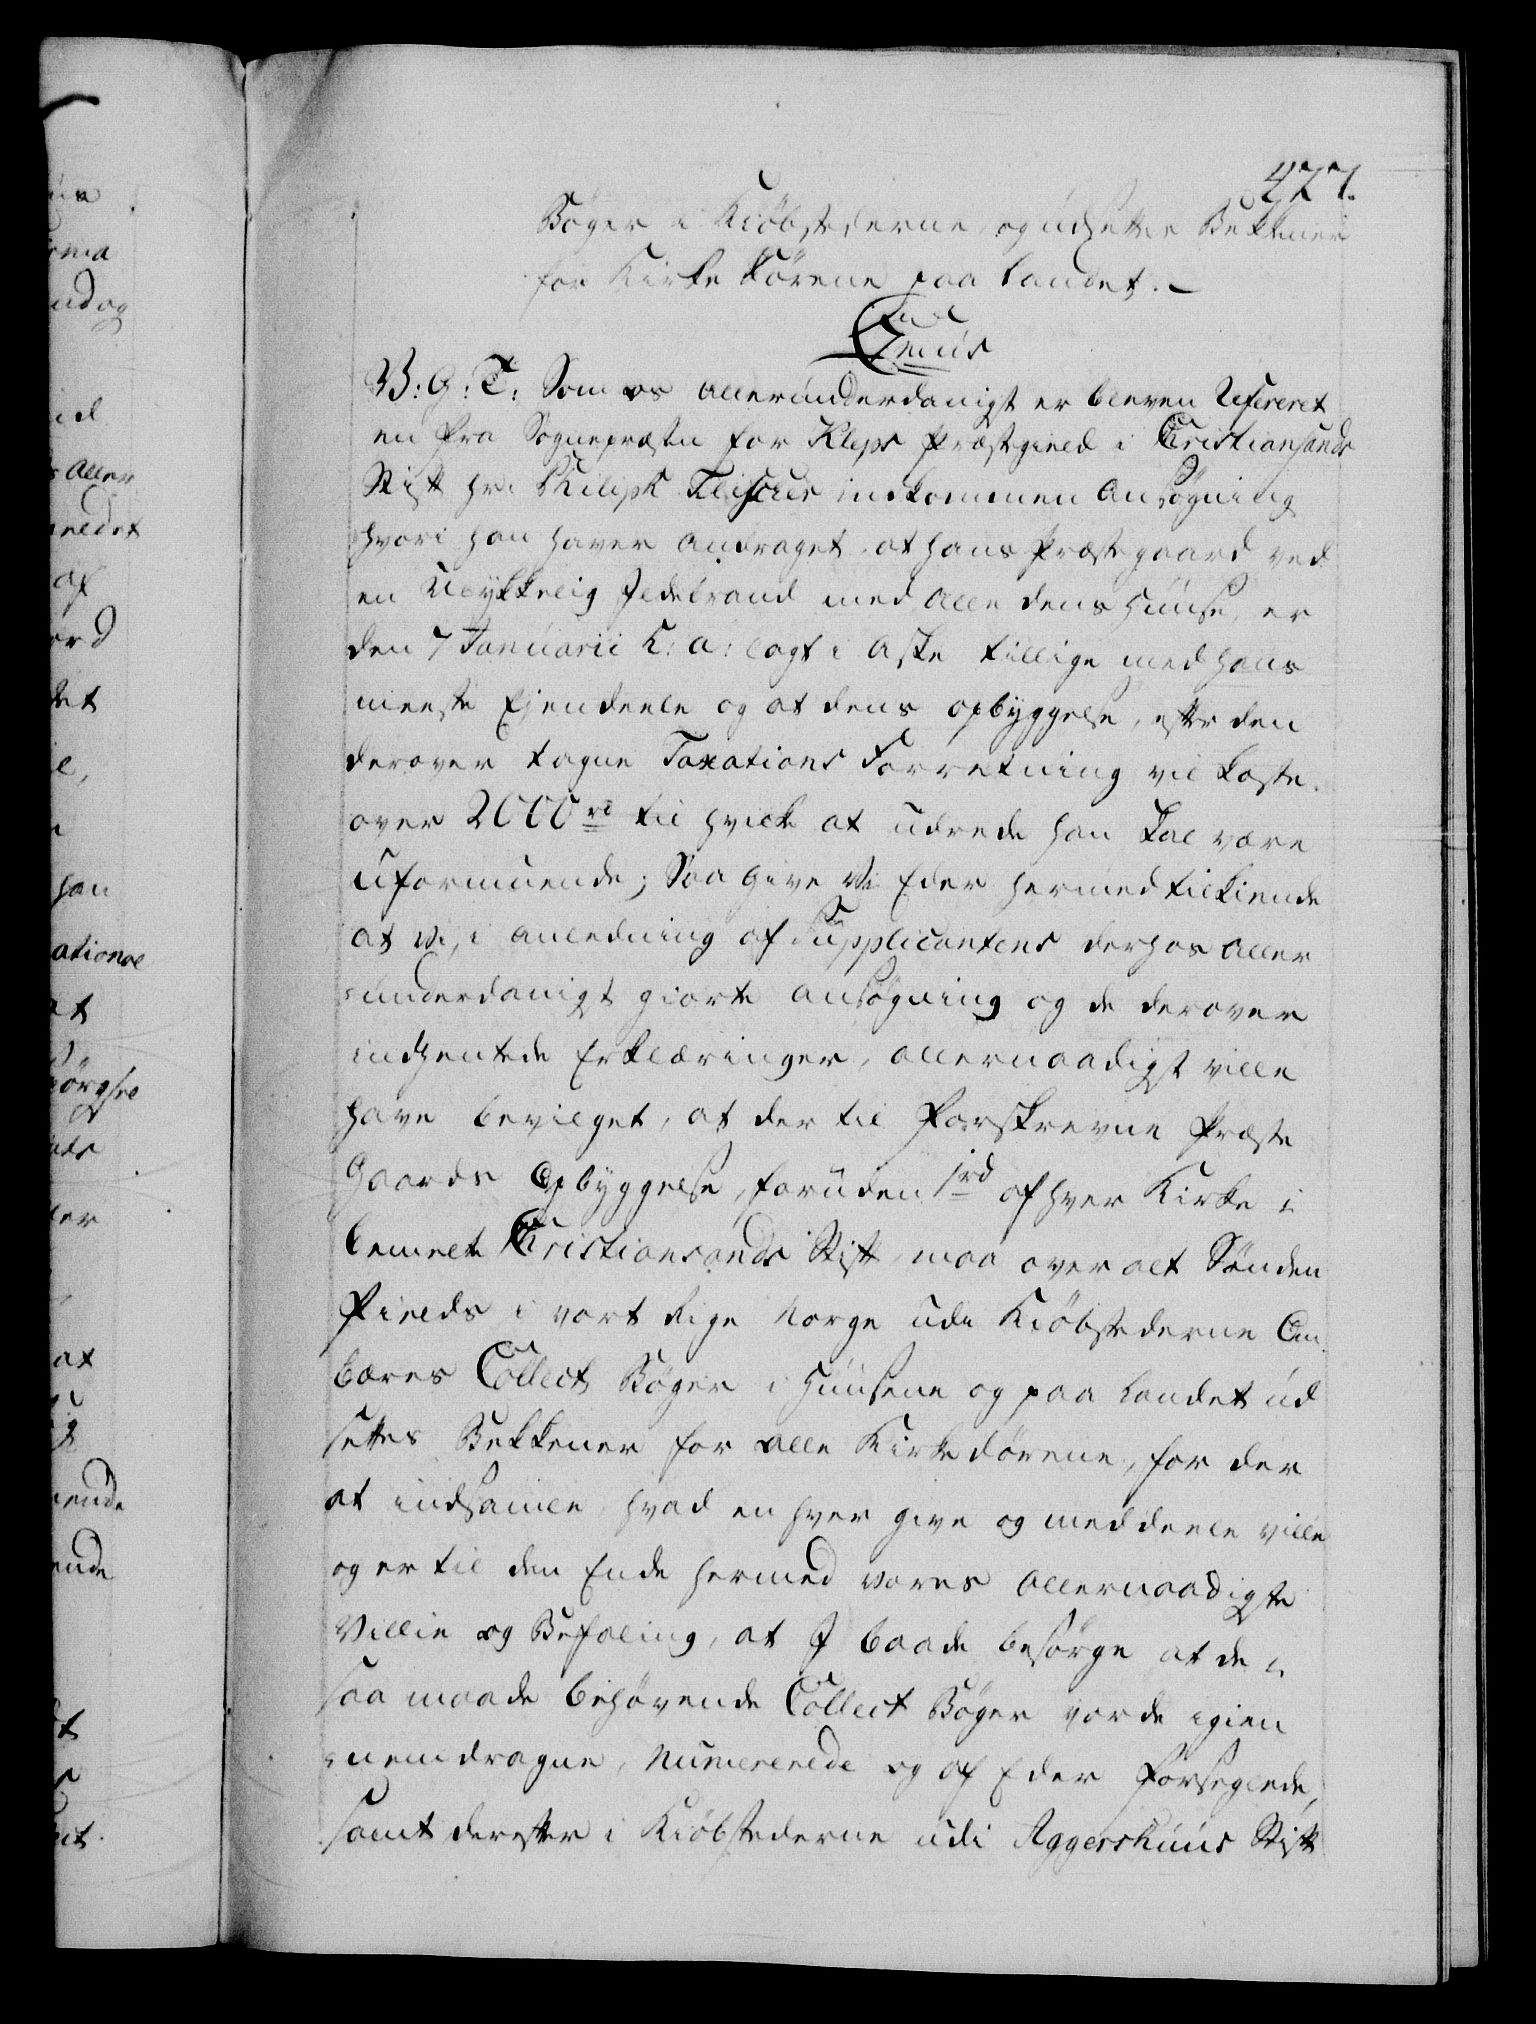 477.
Bøger i Kiöbstæderne, og udsætte Bekkener
for Kirke Dörene paa Landet. –
Cuius
V: G: T: Som os allerunderdanigst er bleven Refereret
en fra Sognepræsten for Kleps Præstegield i Christiansands
Stift Hr: Philiph indkommen Ansøgning
hvori han haver andraget, at hans Præstegaard ved
en Ulykkelig Ildebrand med alle dens Huuse, er
den 7 Januarii h: a: lagt i Aske tillige med hans
meeste Ejendeele og at dens opbyggelse, efter den
derover tagne Taxations Forretning vil koste
over 2000 rd til hvilke at udrede han skal være
uformuende; Saa give Vi Eder hermed tilkiende
at Vi, i anledning af Supplicantens derhos aller
underdanigst giorte ansøgning og de derover
indhentede Erklæringer, allernaadigst ville
have bevilget, at der til Forskrevne Præste
Gaards Opbyggelse, foruden 1 rd af hver Kirke i
bemelte Christiansands Stift, maa over alt Sønden
Fields i vort Rige Norge udi Kiöbstæderne Om
bæres Collect Bøger i Huusene og paa Landet ud
sættes Bekkener for alle Kirkedörene, for der
at indsamle, hvad en hver give og meddeele ville
og er til den Ende hermed vores allernaadigste
Villie og Befaling, at I baade besörge at de i
saa maade behøvende Collect Bøger vorde igien
nemdragne, Numererede og af Eder forseglede,
samt derefter i Kiöbstæderne udi Aggershuus Stift